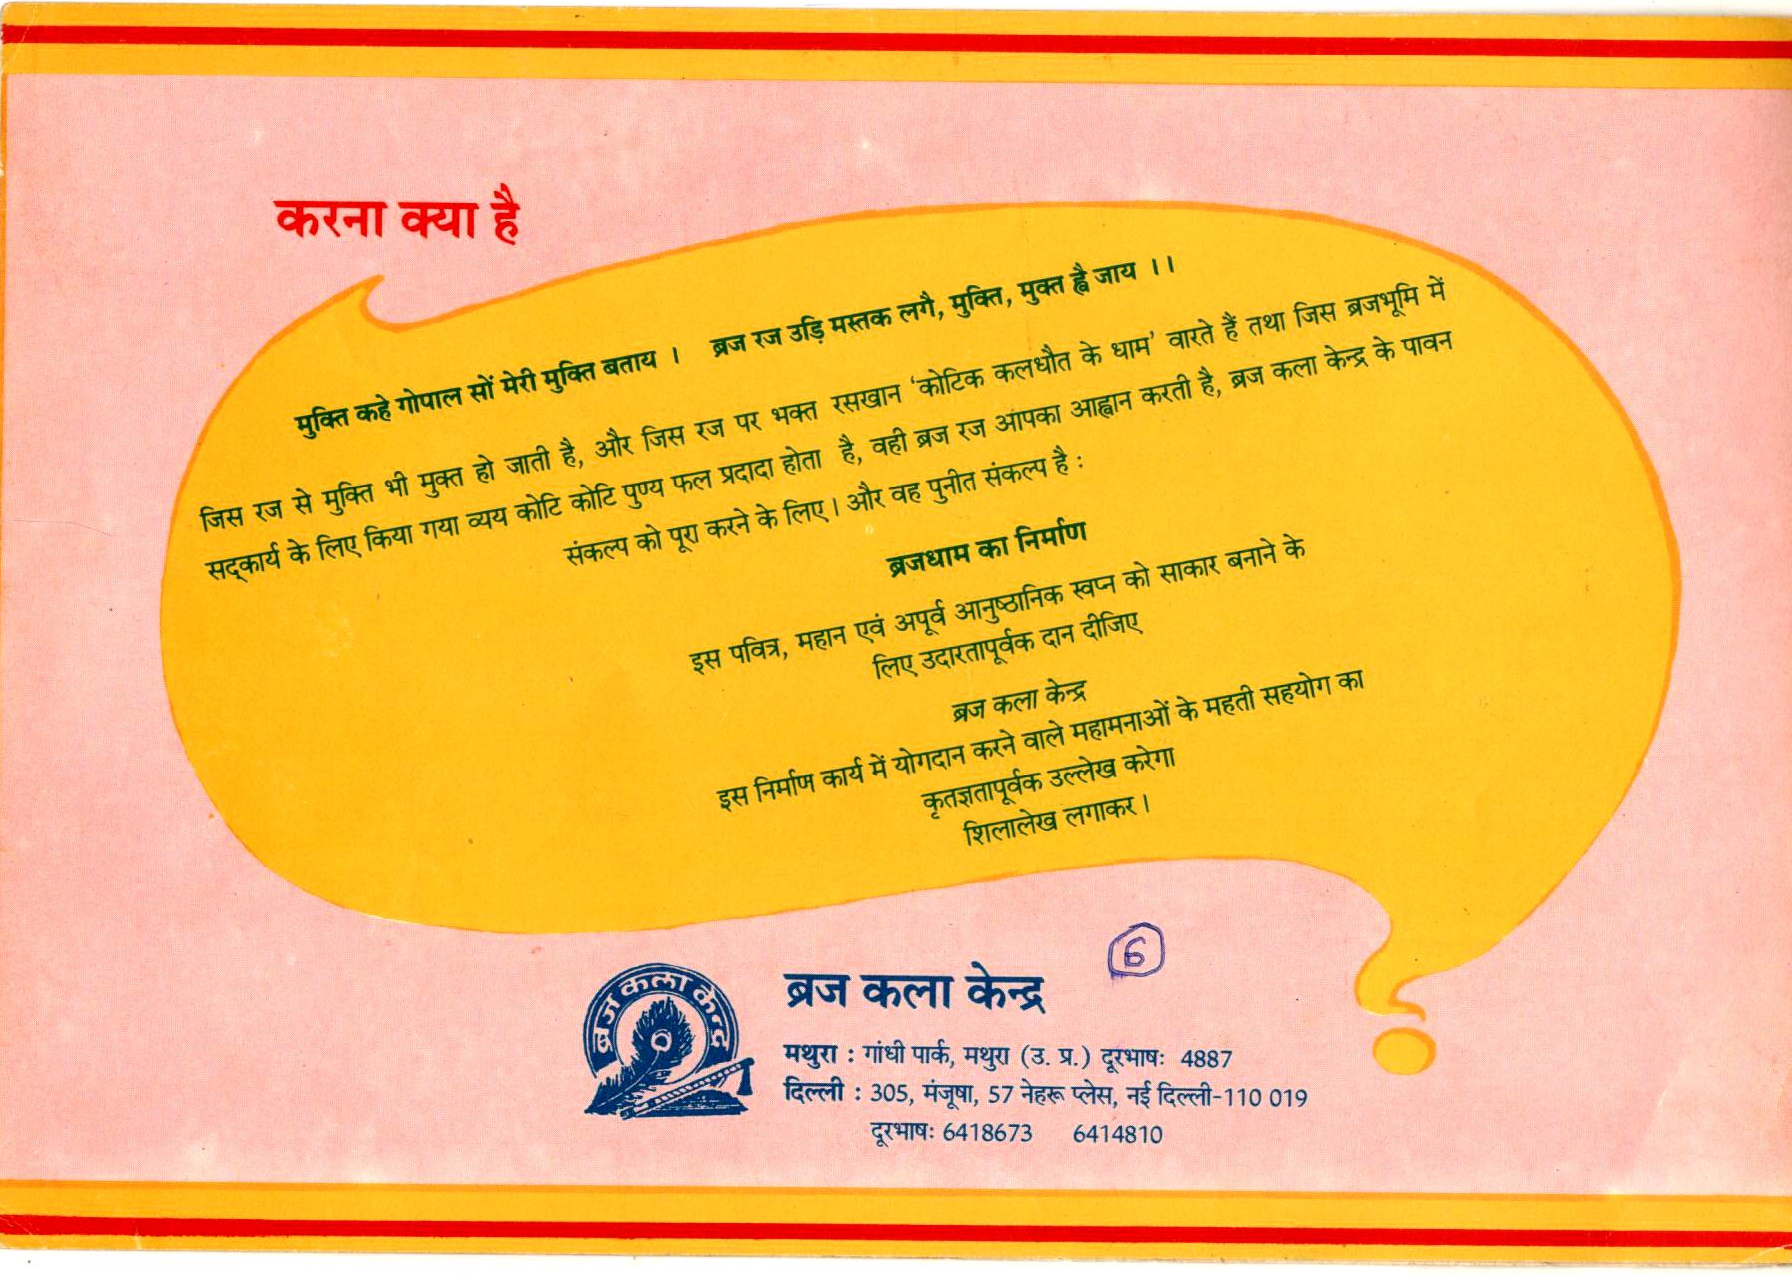 करना क्या है
मुक्ति कहे गोपाल सों मेरी मुक्ति बताय । ब्रज रज उड़ि मस्तक लगै, मुक्ति, मुक्त ह्वै जाय ।।
जिस रज से मुक्ति भी मुक्त हो जाती है, और जिस रज पर भक्त रसखान 'कोटिक कलधौत के धाम' वारते हैं तथा जिस ब्रजभूमि में
सद्कार्य के लिए किया गया व्यय कोटि कोटि पुण्य फल प्रदादा होता है, वही ब्रज रज आपका आह्वान करती है, ब्रज कला केन्द्र के पावन
संकल्प को पूरा करने के लिए। और वह पुनीत संकल्प है :
ब्रजधाम का निर्माण
इस पवित्र, महान एवं अपूर्व आनुष्ठानिक स्वप्न को साकार बनाने के
लिए उदारतापूर्वक दान दीजिए
ब्रज कला केन्द्र
इस निर्माण कार्य में योगदान करने वाले महामनाओं के महती सहयोग का
कृतज्ञतापूर्वक उल्लेख करेगा
शिलालेख लगाकर।
6
ब्रज कला केन्द्र
ब्रज कला केन्द्र
मथुरा : गांधी पार्क, मथुरा (उ. प्र.) दूरभाषः 4887
दिल्ली : 305, मंजूषा, 57 नेहरू प्लेस, नई दिल्ली-110 019
दूरभाषः 6418673 6414810